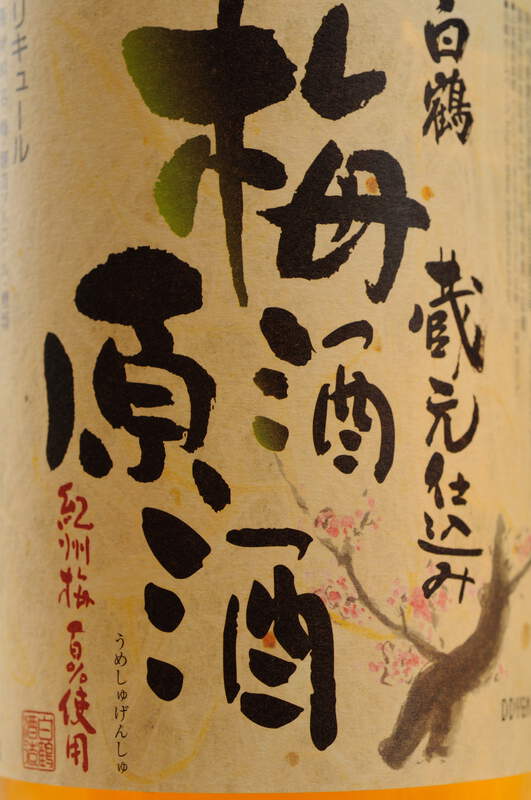 白鶴
蔵元仕込み
梅酒
原酒
うめしゅげんしゅ
紀州梅百%使用
白鶴
酒造
リキュール